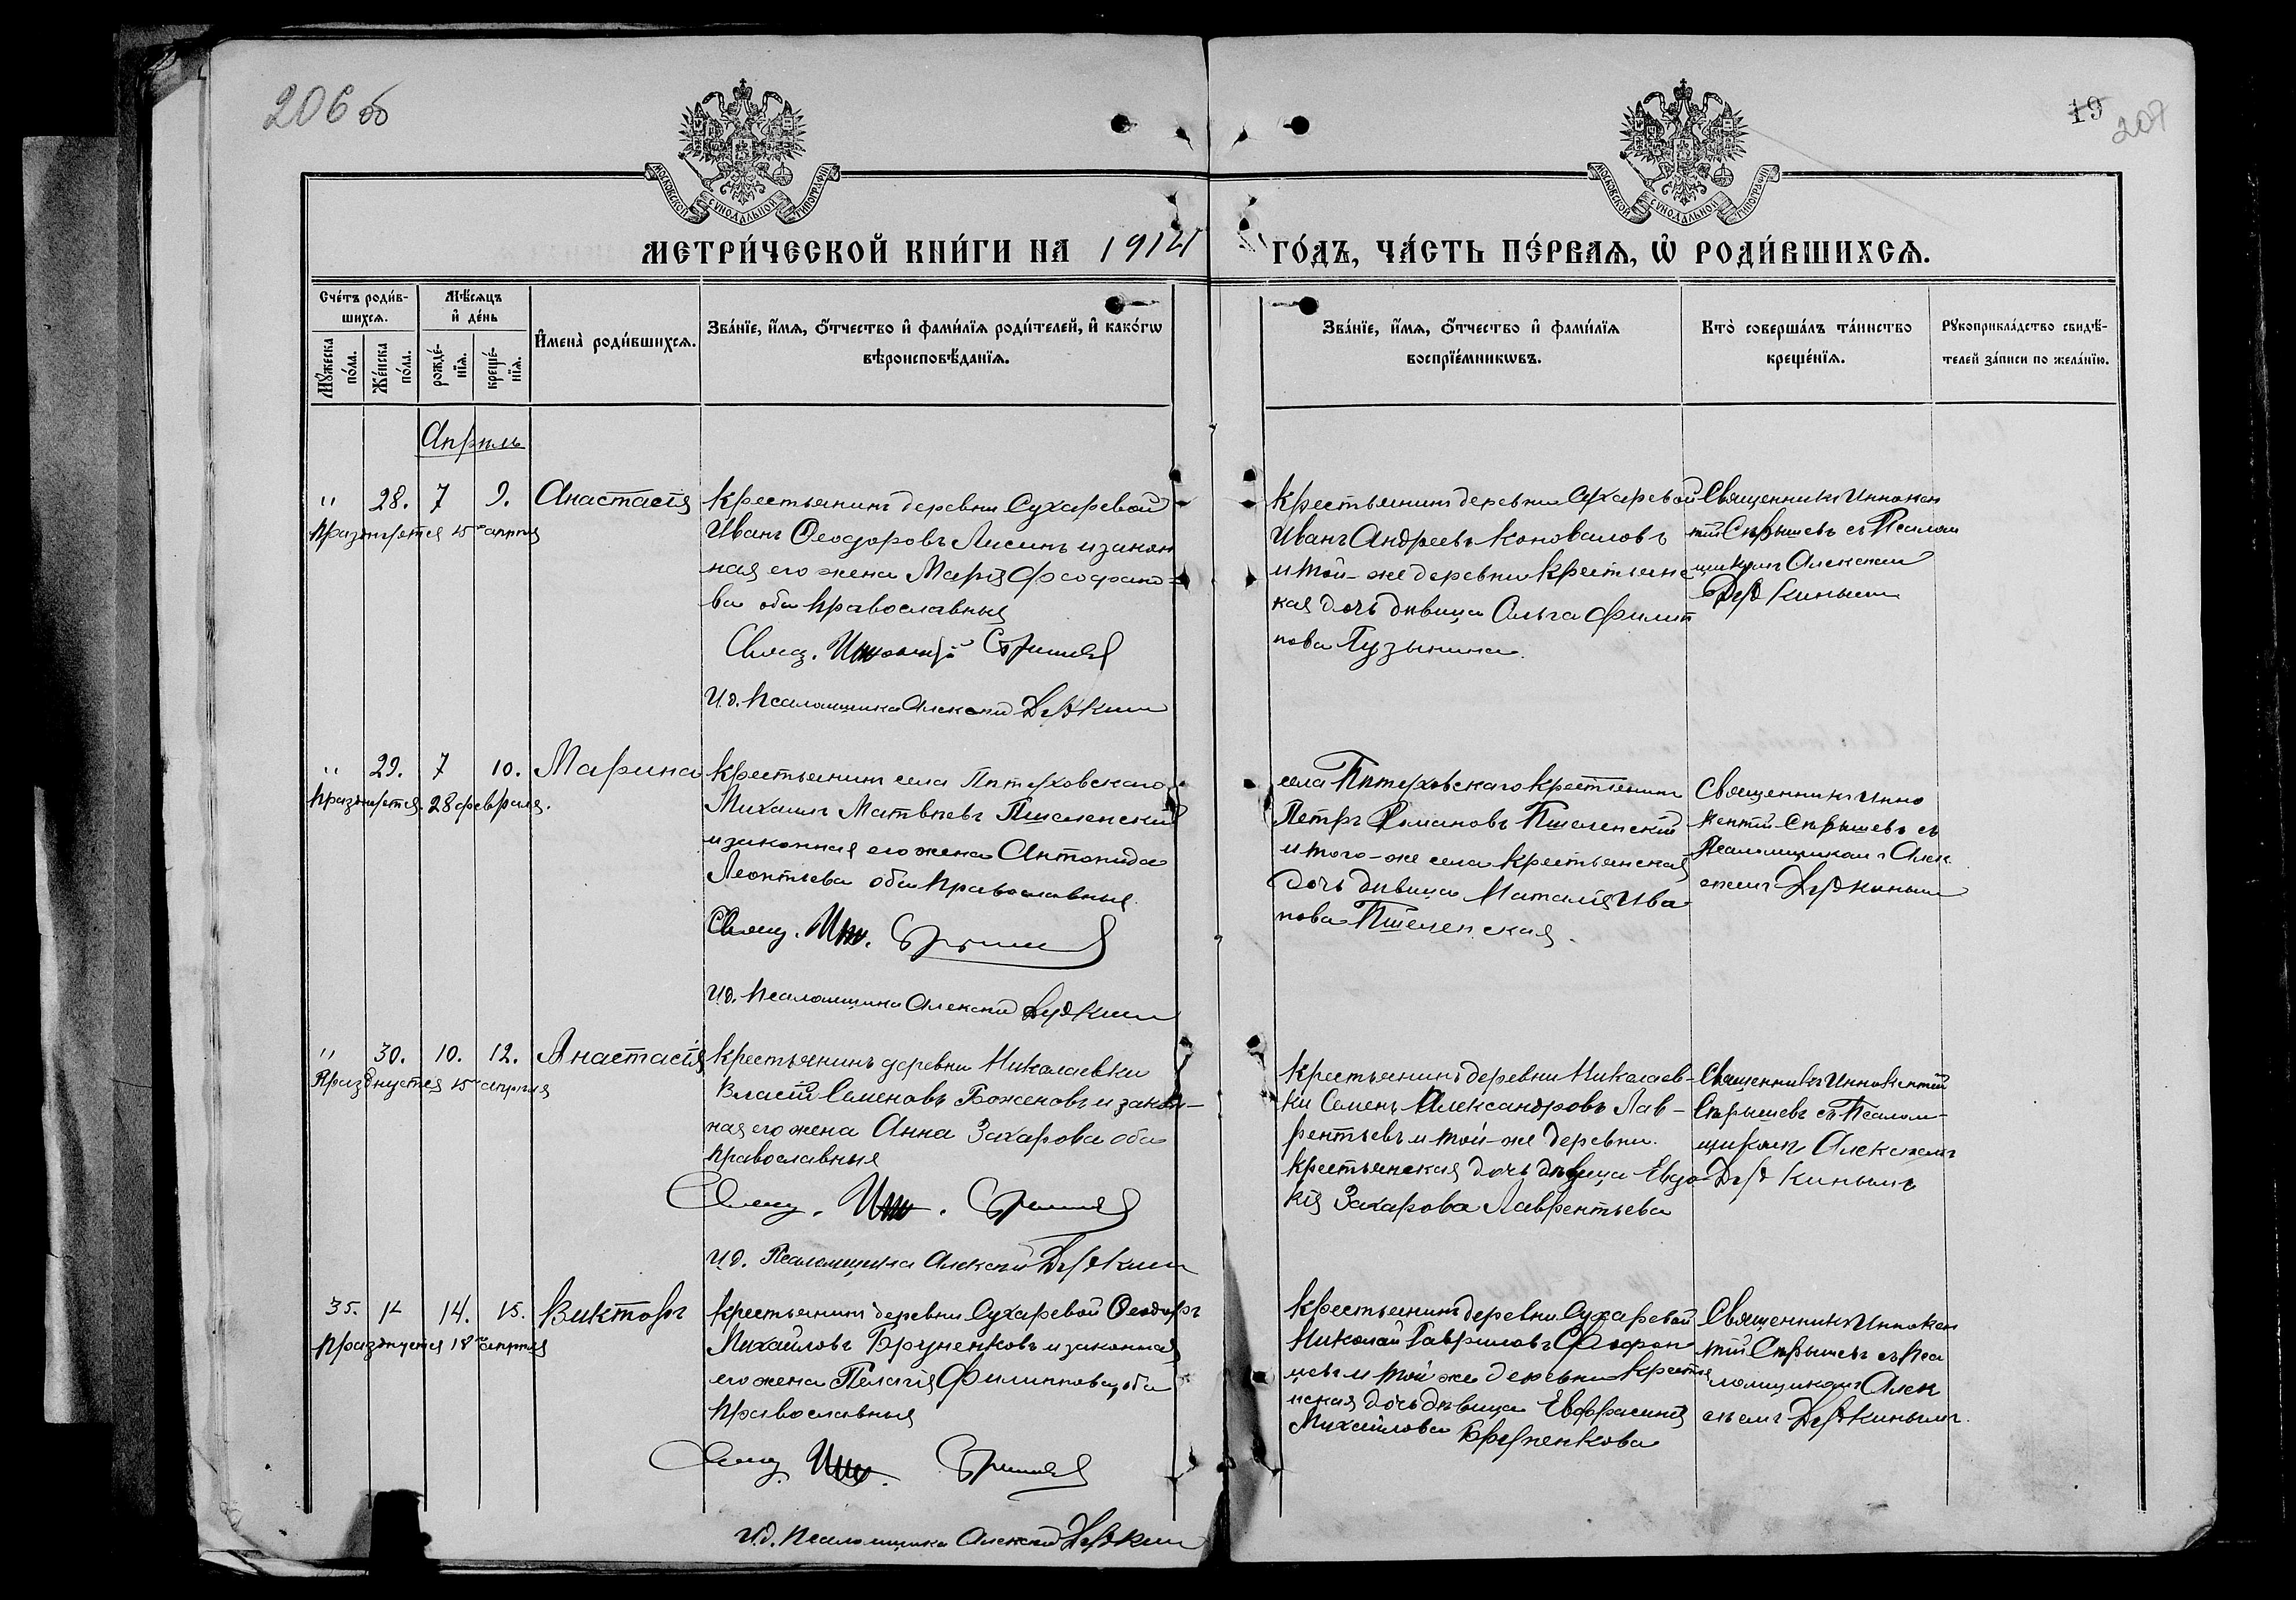 206 об
19
207
МОСКОВСКОЙ СУНОДАЛЬНОЙ ТИПОГРАФІИ
МОСКОВСКОЙ СУНОДАЛЬНОЙ ТИПОГРАФІИ
МЕТРИ́ЧЕСКОЙ КНИ́ГИ НА 1914 ГО́ДЪ, ЧА́СТЬ ПЕ́РВАѦ, Ѡ҆ РОДИ́ВШИХСѦ.
Сче́тъ роди́в-
шихсѧ.
Мꙋ́жеска
по́ла.
Же́нска
по́ла.
Мѣ́сѧцъ
и҆ де́нь
рожде́-
нїѧ.
креще́-
нїѧ.
И҆мена̀ роди́вшихсѧ.
Зва́нїе, и҆́мѧ, ѻ҆́тчество и҆ фами́лїѧ роди́телей, и҆ како́гѡ
вѣроисповѣ́данїѧ.
Зва́нїе, и҆́мѧ, ѻ҆́тчество и҆ фами́лїѧ
воспрїе́мникѡвъ.
Кто̀ соверша́лъ та́инство
креще́нїѧ.
Рꙋкоприкла́дство свидѣ́-
телей за́писи по жела́нїю.
Апрѣль
" 28. 7 9. Анастасія
Празднуется 15го апрѣля
Крестьянинъ деревни Сухаревой
Иванъ Ѳеодоровъ Лисинъ и закон
ная его жена Марія Феофано-
ва оба православныя
Свящ. Иннокентій Стрышевъ
И.д. Псаломщика Алексѣй Дудкин
Крестьянинъ деревни Сухаревой
Иванъ Андреевъ Коноваловъ
и той-же деревни крестьянс
кая дочь дѣвица Ольга Филип
пова Пузынина.
Священникъ Иннокен
тій Стрышевъ съ Псалом
щикомъ Алексѣем
Дудкинымъ
" 29. 7 10. Марина
Празднуется 28 февраля.
Крестьянинъ села Питерховскаго
Михаилъ Матвѣевъ Пшеленскій
и законная его жена Антонида
Леонтьева оба православныя.
Свящ. Инн. Стрышевъ
И.д. Псаломщика Алексѣй Дудкин
села Питерховскаго крестьянинъ
Петръ Романовъ Пшеленскій
и того-же села крестьянская
дочь дѣвица Наталія Ива
нова Пшеленская.
Священникъ Инно
кентій Стрышевъ съ
Псаломщикомъ Алек
сѣемъ Дудкинымъ
" 30. 10. 12. Анастасія
Празднуется 15го апрѣля
Крестьянинъ деревни Николаевки
Власій Семеновъ Боженовъ и закон-
ная его жена Анна Захарова оба
православныя
Свящ. Инн. Стрышевъ
И.д. Псаломщика Алексѣй Дудкин
Крестьянинъ деревни Николаев-
ки Семенъ Александровъ Лав-
рентьевъ и той-же деревни
крестьянская дочь дѣвица Евдо
кія Захарова Лаврентьева
Священникъ Иннокентій
Стрышевъ съ Псалом-
щикомъ Алексѣемъ
Дудкинымъ
35. 14. 15. Викторъ
Празднуется 18го апрѣля
Крестьянинъ деревни Сухаревой Ѳеодоръ
Михайловъ Брупенковъ и законная
его жена Пелагія Филиппова, оба
православныя
Свящ. Инн. Стрышевъ
И.д. Псаломщика Алексѣй Дудкин
Крестьянинъ деревни Сухаревой
Николай Гавриловъ Феофан
цевъ и той же деревни крестья
нская дочь дѣвица Евфрасинія
Михайлова Брупенкова
Священникъ Иннокен
тій Стрышевъ съ Пса
ломщикомъ Алек
сѣемъ Дудкинымъ.